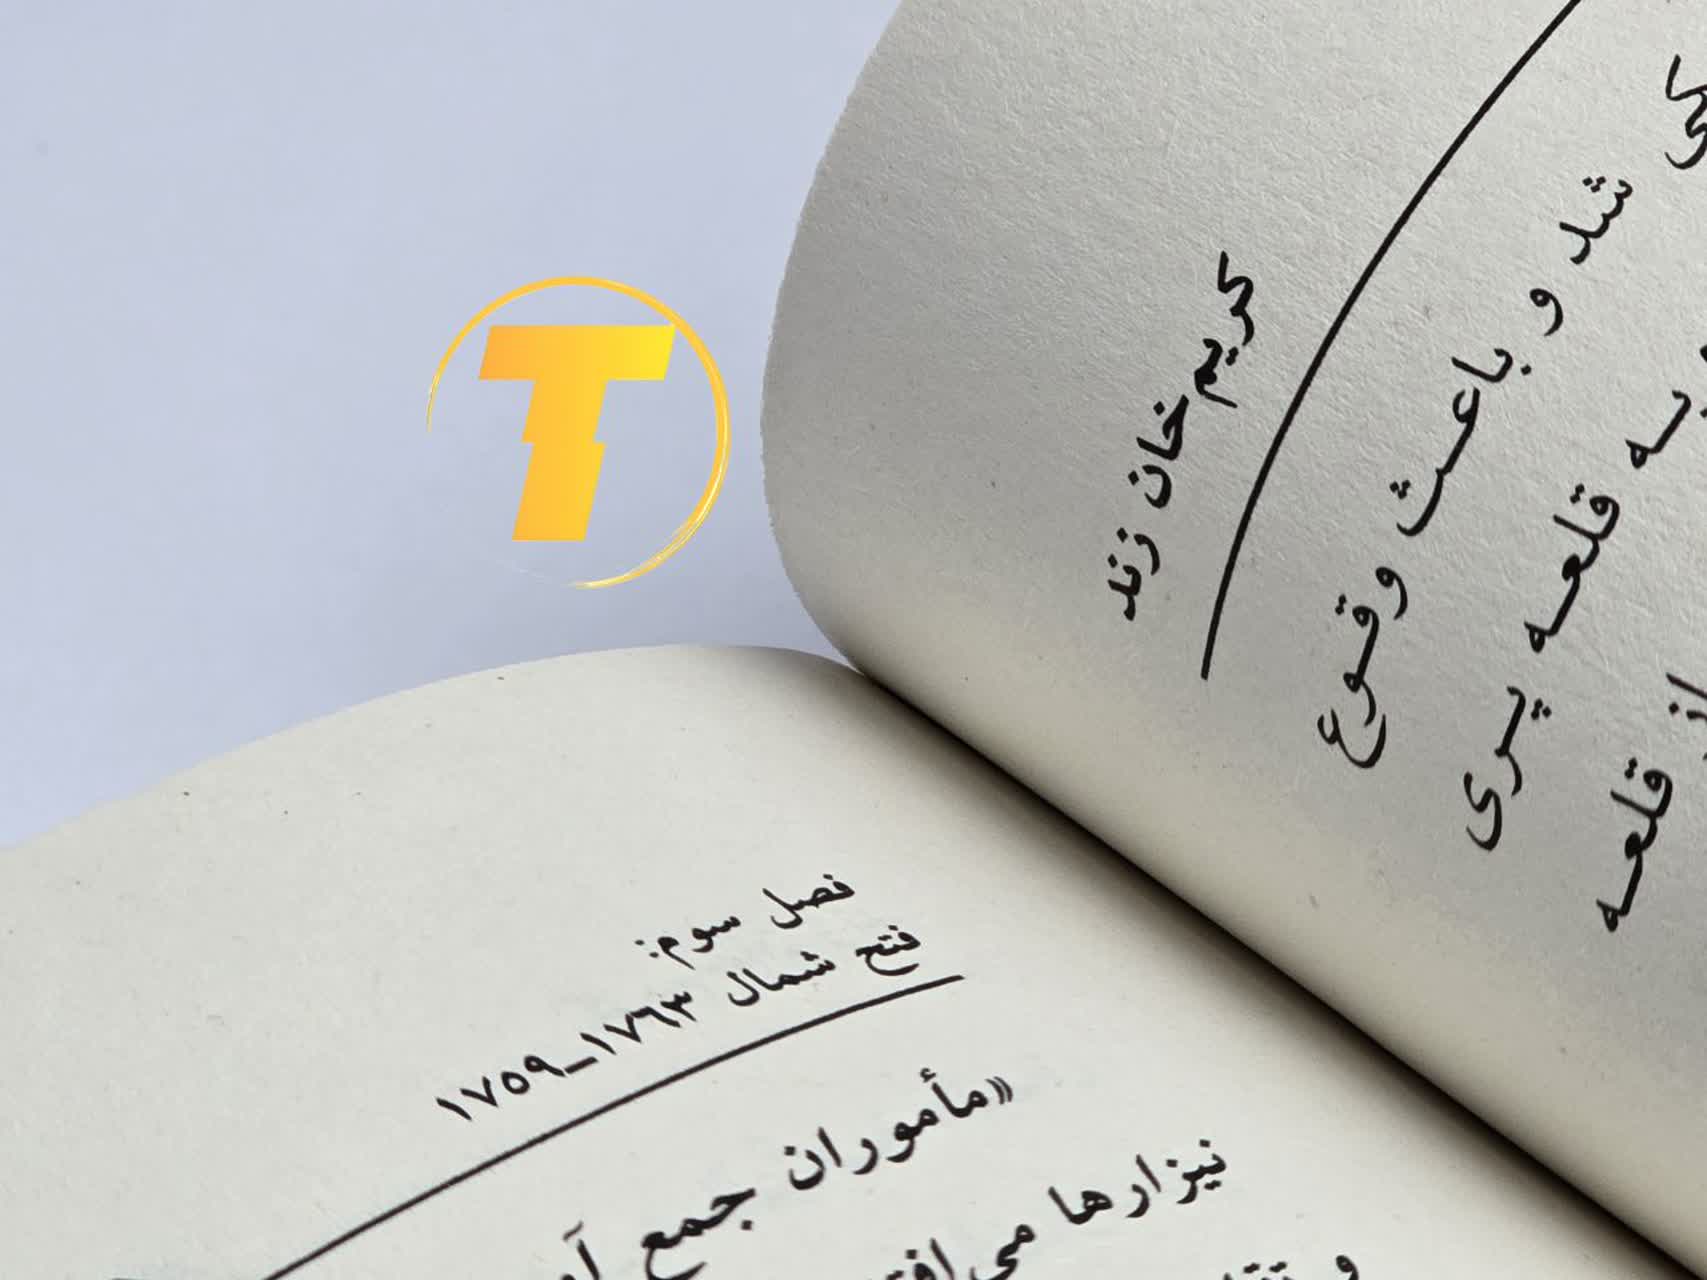 T
کریم‌خان زند
کی شد و باعث وقوع
به قلعه پری
از قلعه
فصل سوم:
فتح شمال ۱۷۶۳_۱۷۵۹
«مأموران جمع
نیزارها می
و